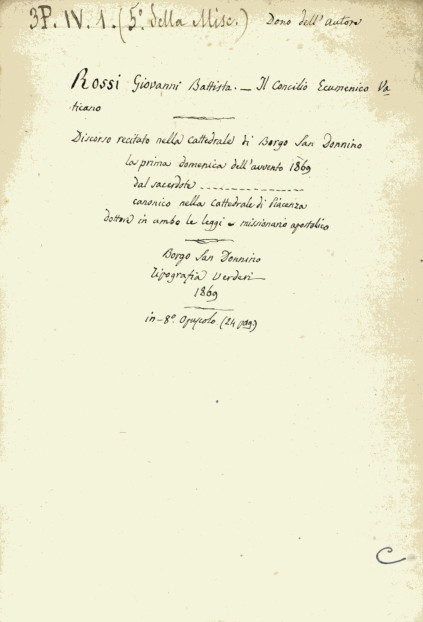 3P. IV. 1. (5º della Misc.) Dono dell'autore
Rossi Giovanni Battista. — Il Concilio Ecumenico Va
ticano
Discorso recitato nella Cattedrale di Borgo San Donnino
la prima domenica dell'avvento 1869
dal sacerdote ----------
canonico nella Cattedrale di Piacenza
dottore in ambo le leggi e missionario apostolico
Borgo San Donnino
Tipografia Verderi
1869
in-8º. Opuscolo. (24 pag)
C